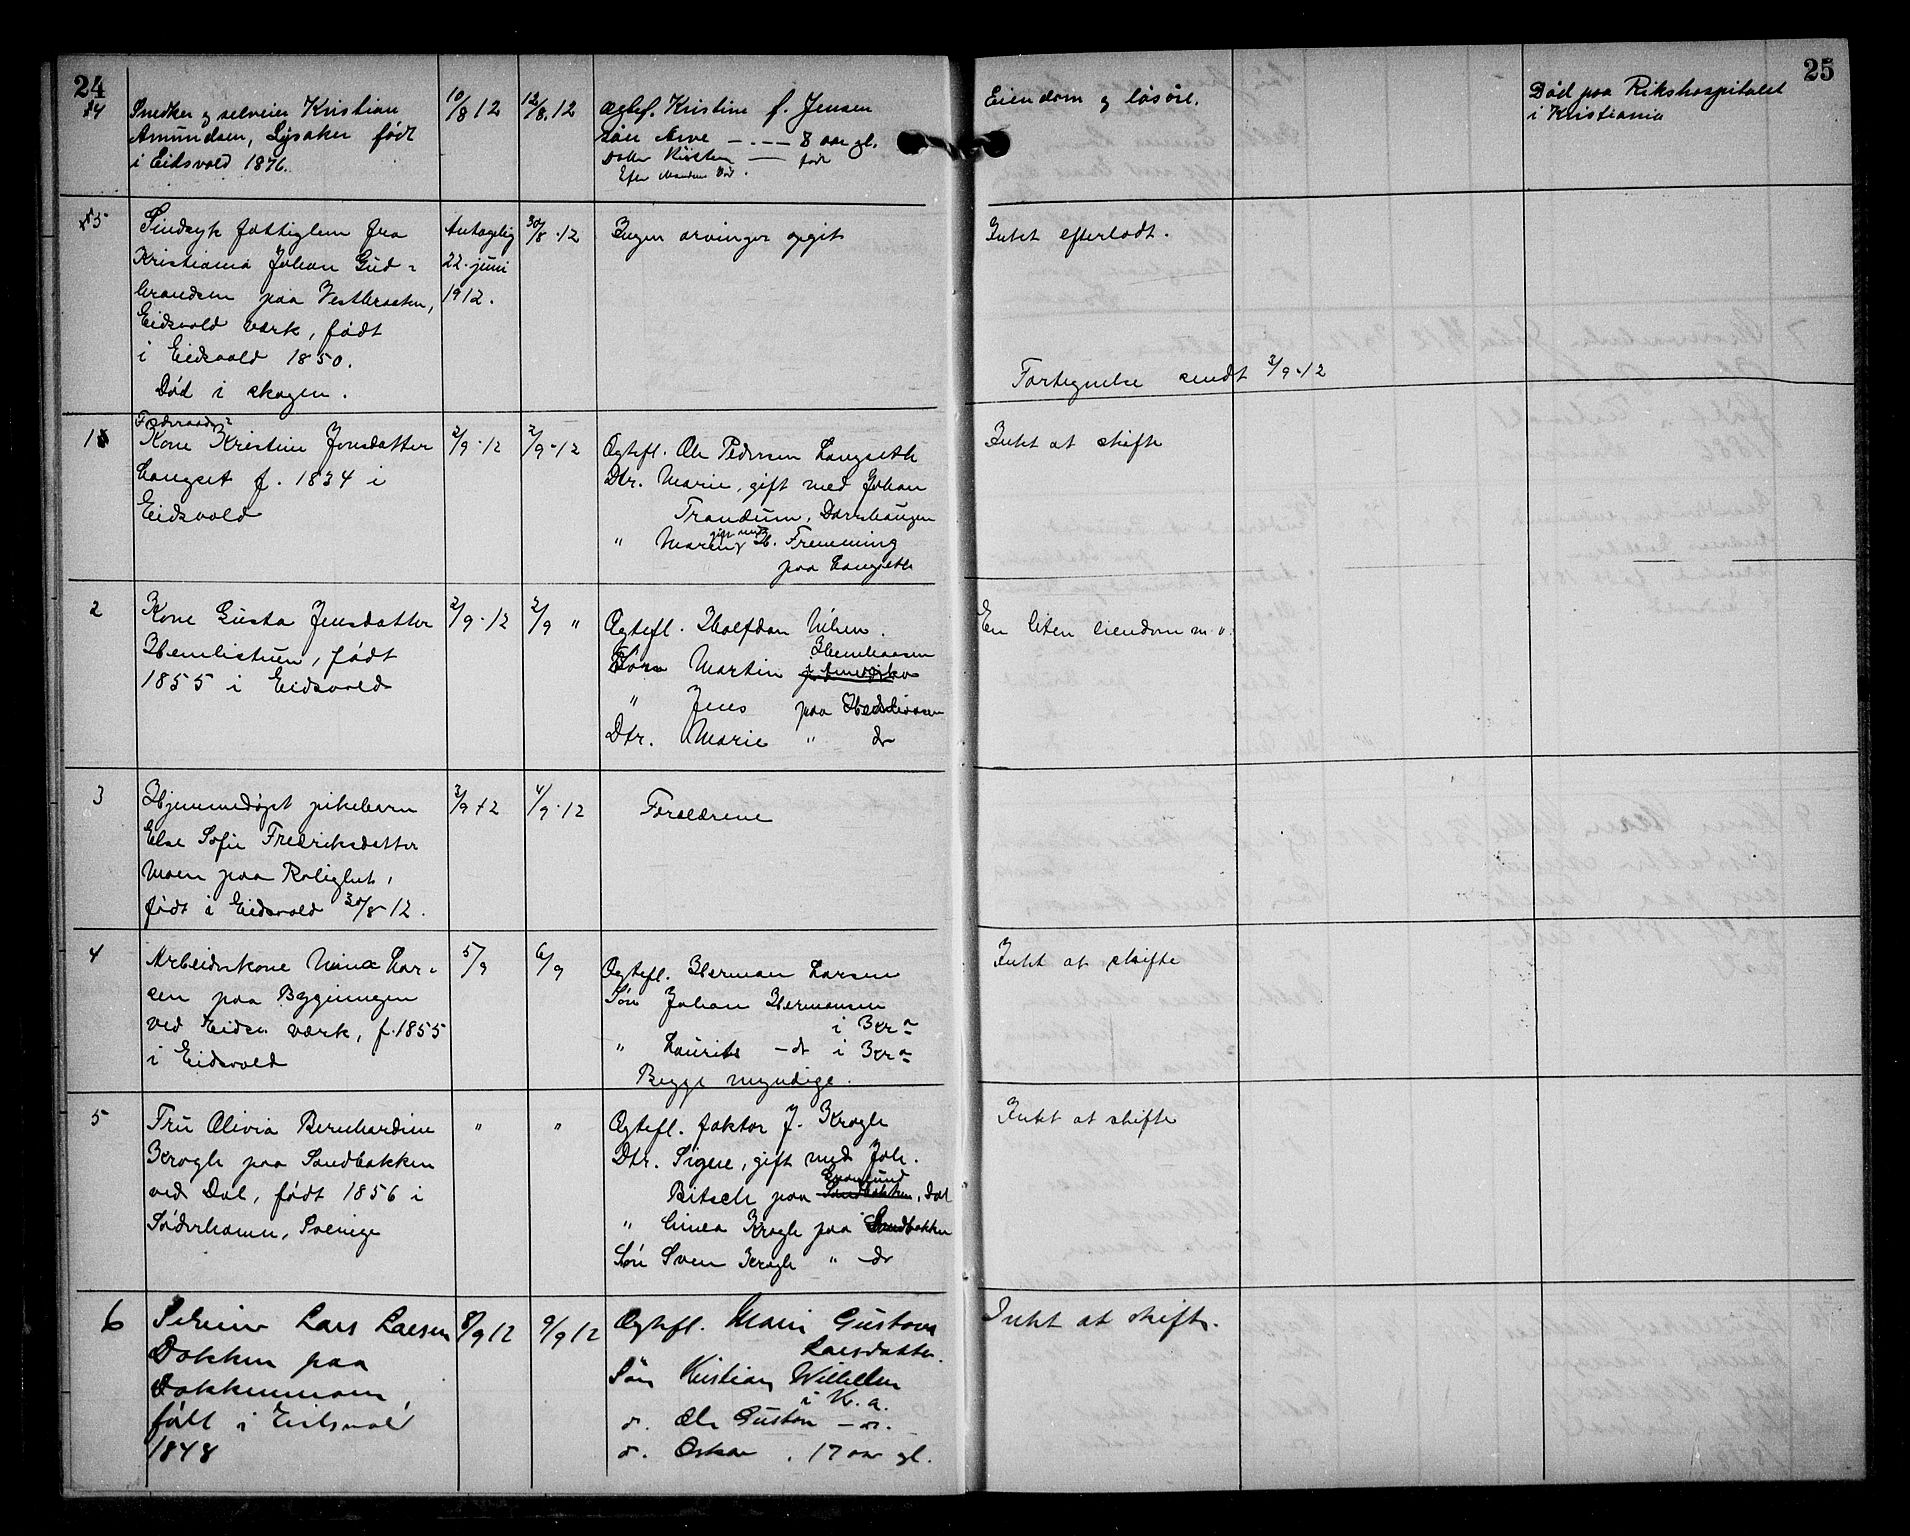 24
25
14
Snedker og selveier Kristian
Amundsen, Lysaker født
i Eidsvold 1876.
10/8 12
12/8.12
Ægtef. Kristine f. Jensen
Søn Arve — . — 8 aar gl.
Datter Kirsten — født
Efter Mandens Død.
Eiendom og løsøre.
Død paa Rikshospitalet
i Kristiania
15
Sindsyk fattiglem fra
Kristiania Johan Gud-
brandsen paa Vestbraaten,
Eidsvold værk, født
i Eidsvold 1850.
Død i skogen.
Antagelig
22. juni
1912.
30/8.12
Ingen arvinger opgit
Intet efterladt.
Fortegnelse sendt 3/9.12
1
Føderaads-
Kone Kristine Jonsdatter
Langset f. 1834 i
Eidsvold
2/9.12
2/9.12
Ægtefl. Ole Pedersen Langseth
Dtr. Marie, gift med Johan
Trandum,
" Maren gift med H. Fremming
paa Langseth
Intet at skifte
2
Kone Gusta Jensdatter
Hemlistuen, født
1855 i Eidsvold
2/9.12
2/9 "
Ægtefl. Halfdan Nilsen.
Søn Martin
" Jens paa
Dtr. Marie " do
En liten eiendom m.v.
3
Hjemmedøpt pikebarn
Else Sofie Fredriksdatter
Moen paa Rolighet,
født i Eidsvold 30/8 12.
3/9 12
4/9.12
Forældrene
4
Arbeiderkone Nina Lar-
sen paa Bygningen
ved Eidsv værk, f. 1855
i Eidsvold
5/9
6/9
Ægtefl. Herman Larsen
Søn Johan Hermansen
i Kr.a
" Laurits — do i Kr.a
Begge myndige.
Intet at skifte
5
Fru Olivia Bernhardine
Krogh paa Sandbakken
ved Dal, født 1856 i
Söderhamn, Sverige
"
"
Ægtefl. faktor J. Krogh
Dtr. Signe, gift med Joh.
Bitsch paa Sandbakken, Dal
" Linea Krogh paa Sandbakken
Søn Sven Krogh " do
Intet at skifte
6
Selveier Lars Larsen
Dokken paa
Dokkenmoen
født i Eidsvold
1848
8/9 12
9/9 12
Ægtefl. Mari Gustava
Larsdatter.
Søn Kristian Wilhelm
i K.a.
do. Ole Gustav — do. —
do. Oskar, 17 aar gl.
Intet at skifte.